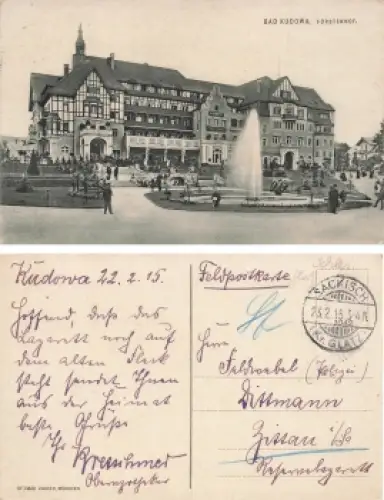 BAD KUDOWA. FÜRSTENHOF.
Kudowa 22. 2. 15.
Hoffend, daß das
Lazarett noch auf
dem alten Fleck
steht sendet Ihnen
aus der Heimat
beste Grüße
Ihr
Oberapotheker
Feldpostkarte
SACKISCH
23.2.15
(Kr. GLATZ)
Herrn
Feldwebel (Polizei)
Dittmann
Zittau i/S.
Reservelazarett